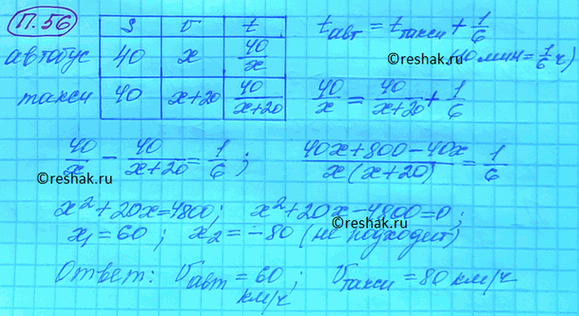 П.56
S v t
автобус 40 x 40/x
такси 40 x+20 40/(x+20)
tавт = tтакси + 1/6
©reshak.ru
(10 мин = 1/6 ч)
40/x = 40/(x+20) + 1/6
40/x - 40/(x+20) = 1/6; (40x+800-40x)/(x(x+20)) = 1/6
©reshak.ru
©reshak.ru
x²+20x=4800; x²+20x-4800=0;
x₁=60; x₂=-80 (не подходит)
©reshak.ru
Ответ: vавт = 60 км/ч; vтакси = 80 км/ч